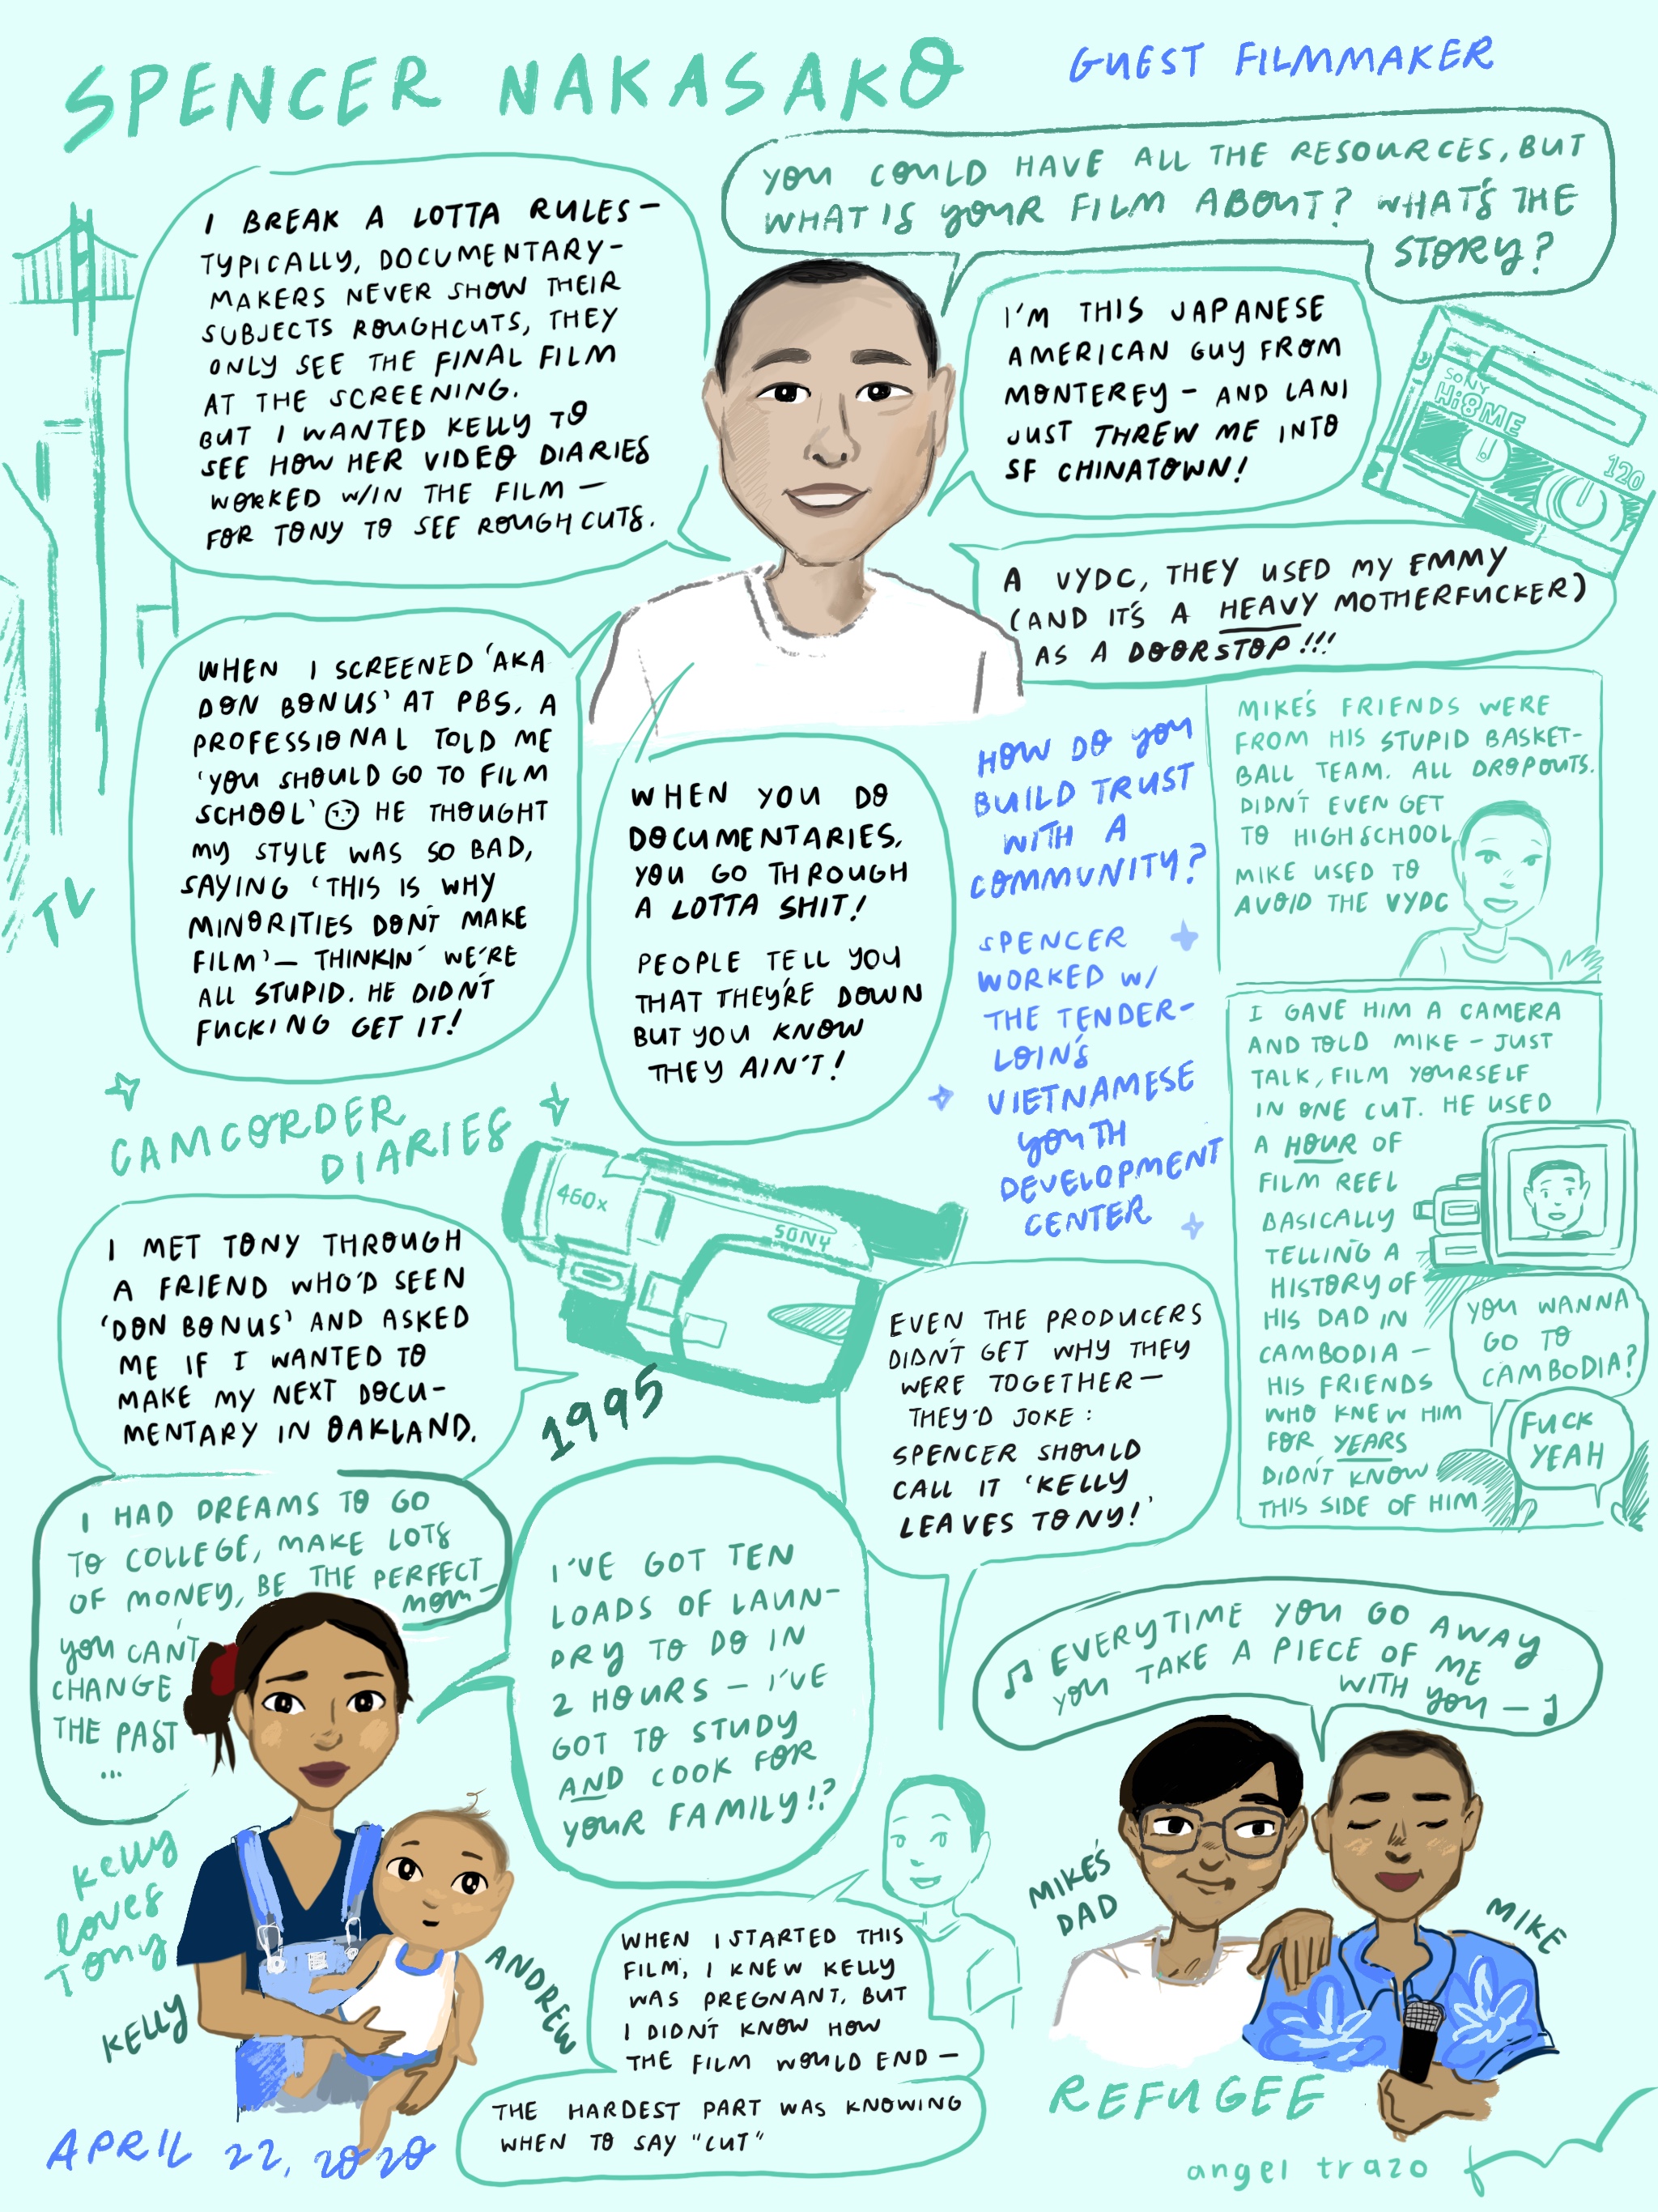 SPENCER NAKASAKO
GUEST FILMMAKER
YOU COULD HAVE ALL THE RESOURCES, BUT
WHAT IS YOUR FILM ABOUT? WHAT'S THE
STORY?
I BREAK A LOTTA RULES—
TYPICALLY, DOCUMENTARY-
MAKERS NEVER SHOW THEIR
SUBJECTS ROUGHCUTS, THEY
ONLY SEE THE FINAL FILM
AT THE SCREENING.
BUT I WANTED KELLY TO
SEE HOW HER VIDEO DIARIES
WORKED W/IN THE FILM —
FOR TONY TO SEE ROUGH CUTS.
I'M THIS JAPANESE
AMERICAN GUY FROM
MONTEREY - AND LANI
JUST THREW ME INTO
SF CHINATOWN!
SONY
Hi8ME
120
A VYDC, THEY USED MY EMMY
(AND IT'S A HEAVY MOTHERFUCKER)
AS A DOORSTOP!!!
WHEN I SCREENED 'AKA
DON BONUS' AT PBS, A
PROFESSIONAL TOLD ME
'YOU SHOULD GO TO FILM
SCHOOL' HE THOUGHT
MY STYLE WAS SO BAD,
SAYING 'THIS IS WHY
MINORITIES DON'T MAKE
FILM'— THINKIN' WE'RE
ALL STUPID. HE DIDN'T
FUCKING GET IT!
TL
WHEN YOU DO
DOCUMENTARIES,
YOU GO THROUGH
A LOTTA SHIT!
PEOPLE TELL YOU
THAT THEY'RE DOWN
BUT YOU KNOW
THEY AIN'T!
HOW DO YOU
BUILD TRUST
WITH A
COMMUNITY?
SPENCER
WORKED W/
THE TENDER-
LOIN'S
VIETNAMESE
YOUTH
DEVELOPMENT
CENTER
MIKE'S FRIENDS WERE
FROM HIS STUPID BASKET-
BALL TEAM. ALL DROPOUTS.
DIDN'T EVEN GET
TO HIGHSCHOOL
MIKE USED TO
AVOID THE VYDC
I GAVE HIM A CAMERA
AND TOLD MIKE - JUST
TALK, FILM YOURSELF
IN ONE CUT. HE USED
A HOUR OF
FILM REEL
BASICALLY
TELLING A
HISTORY OF
HIS DAD IN
CAMBODIA —
HIS FRIENDS
WHO KNEW HIM
FOR YEARS
DIDN'T KNOW
THIS SIDE OF HIM
YOU WANNA
GO TO
CAMBODIA?
FUCK
YEAH
CAMCORDER
DIARIES
460x
SONY
1995
I MET TONY THROUGH
A FRIEND WHO'D SEEN
'DON BONUS' AND ASKED
ME IF I WANTED TO
MAKE MY NEXT DOCU-
MENTARY IN OAKLAND.
EVEN THE PRODUCERS
DIDN'T GET WHY THEY
WERE TOGETHER—
THEY'D JOKE:
SPENCER SHOULD
CALL IT 'KELLY
LEAVES TONY!'
I HAD DREAMS TO GO
TO COLLEGE, MAKE LOTS
OF MONEY, BE THE PERFECT
MOM—
YOU CAN'T
CHANGE
THE PAST
...
I'VE GOT TEN
LOADS OF LAUN-
DRY TO DO IN
2 HOURS — I'VE
GOT TO STUDY
AND COOK FOR
YOUR FAMILY!?
♫ EVERYTIME YOU GO AWAY
YOU TAKE A PIECE OF ME
WITH YOU — ♪
Kelly
loves
Tony
KELLY
ANDREW
WHEN I STARTED THIS
FILM, I KNEW KELLY
WAS PREGNANT, BUT
I DIDN'T KNOW HOW
THE FILM WOULD END —
THE HARDEST PART WAS KNOWING
WHEN TO SAY "CUT"
MIKE'S
DAD
MIKE
REFUGEE
APRIL 22, 2020
angel trazo